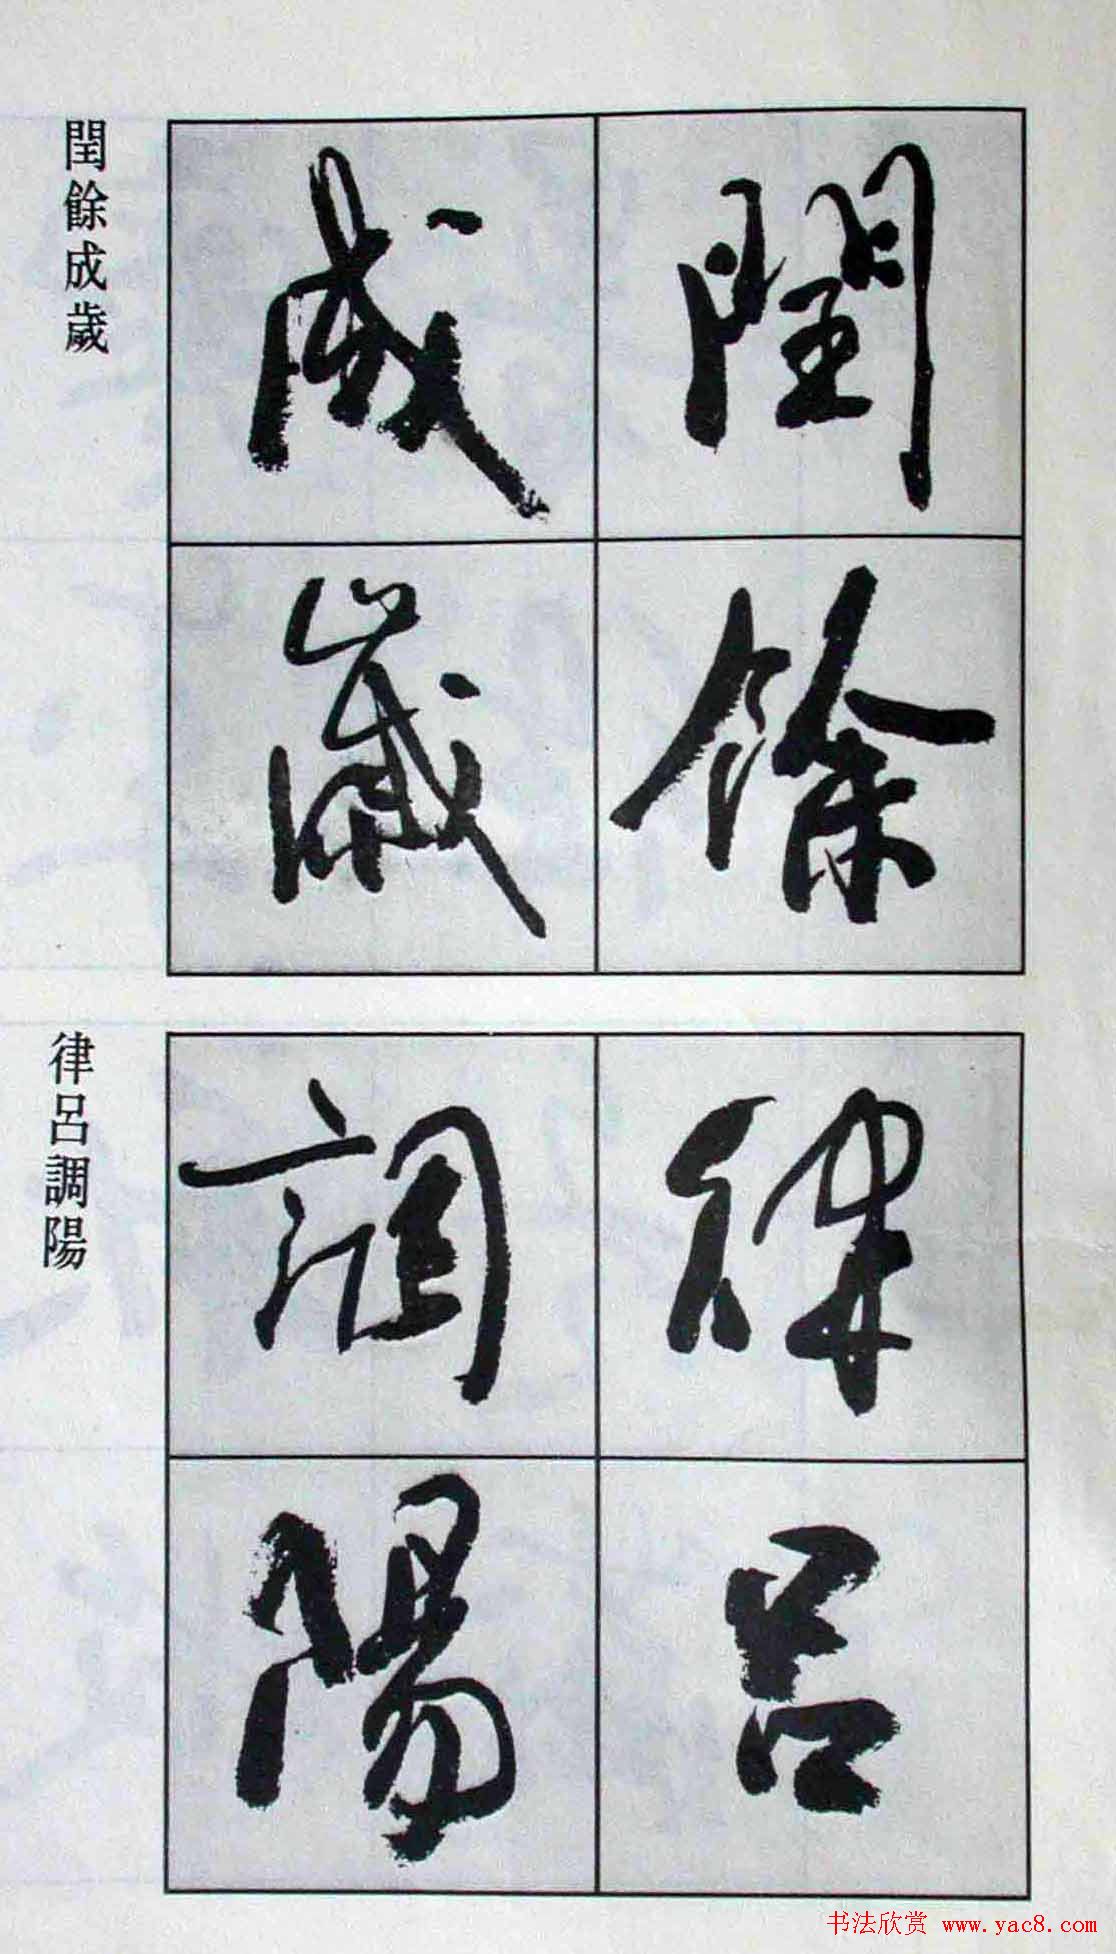 閏餘
成歲
閏餘成歲
律呂
調陽
律呂調陽
书法欣赏 www.yac8.com